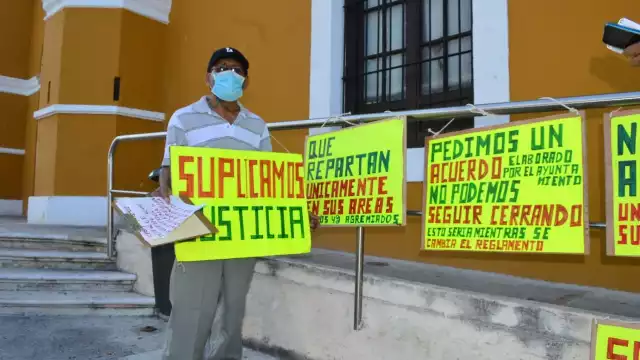 SUPLICAMOS
JUSTICIA
QUE
REPARTAN
UNICAMENTE
EN SUS AREAS
AGREMIADOS
PEDIMOS UN
ACUERDO ELABORADO
POR EL AYUNTA
MIENTO
NO PODEMOS
SEGUIR CERRANDO
ESTO SERIA MIENTRAS SE
CAMBIA EL REGLAMENTO